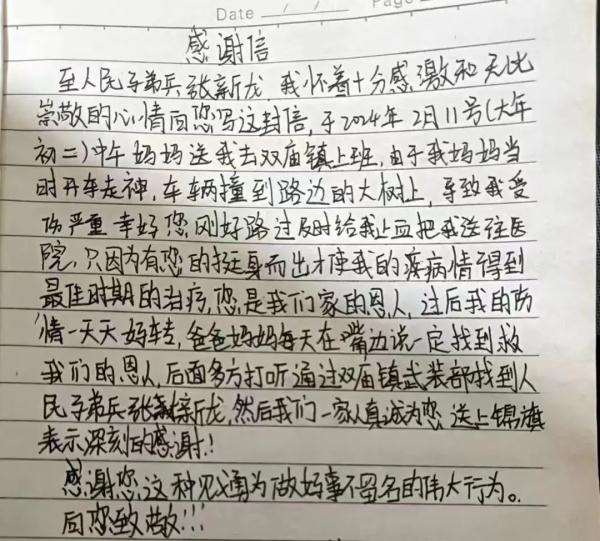 Date / /
Page
感谢信
至人民子弟兵张新龙,我怀着十分感激和无比
崇敬的心情向您写这封信,于2024年2月11号(大年
初二)中午妈妈送我去双庙镇上班,由于我妈妈当
时开车走神,车辆撞到路边的大树上,导致我受
伤严重幸好您刚好路过及时给我止血把我送往医
院,只因为有您的挺身而出才使我的疾病情得到
最佳时期的治疗,您是我们家的恩人,过后我的伤
情一天天好转,爸爸妈妈每天在嘴边说一定找到救
我们的恩人,后面多方打听通过双庙镇武装部找到人
民子弟兵张新龙,然后我们一家人真诚为您送上锦旗
表示深刻的感谢!
感谢您这种见义勇为做好事不留名的伟大行为。
向您致敬!!!